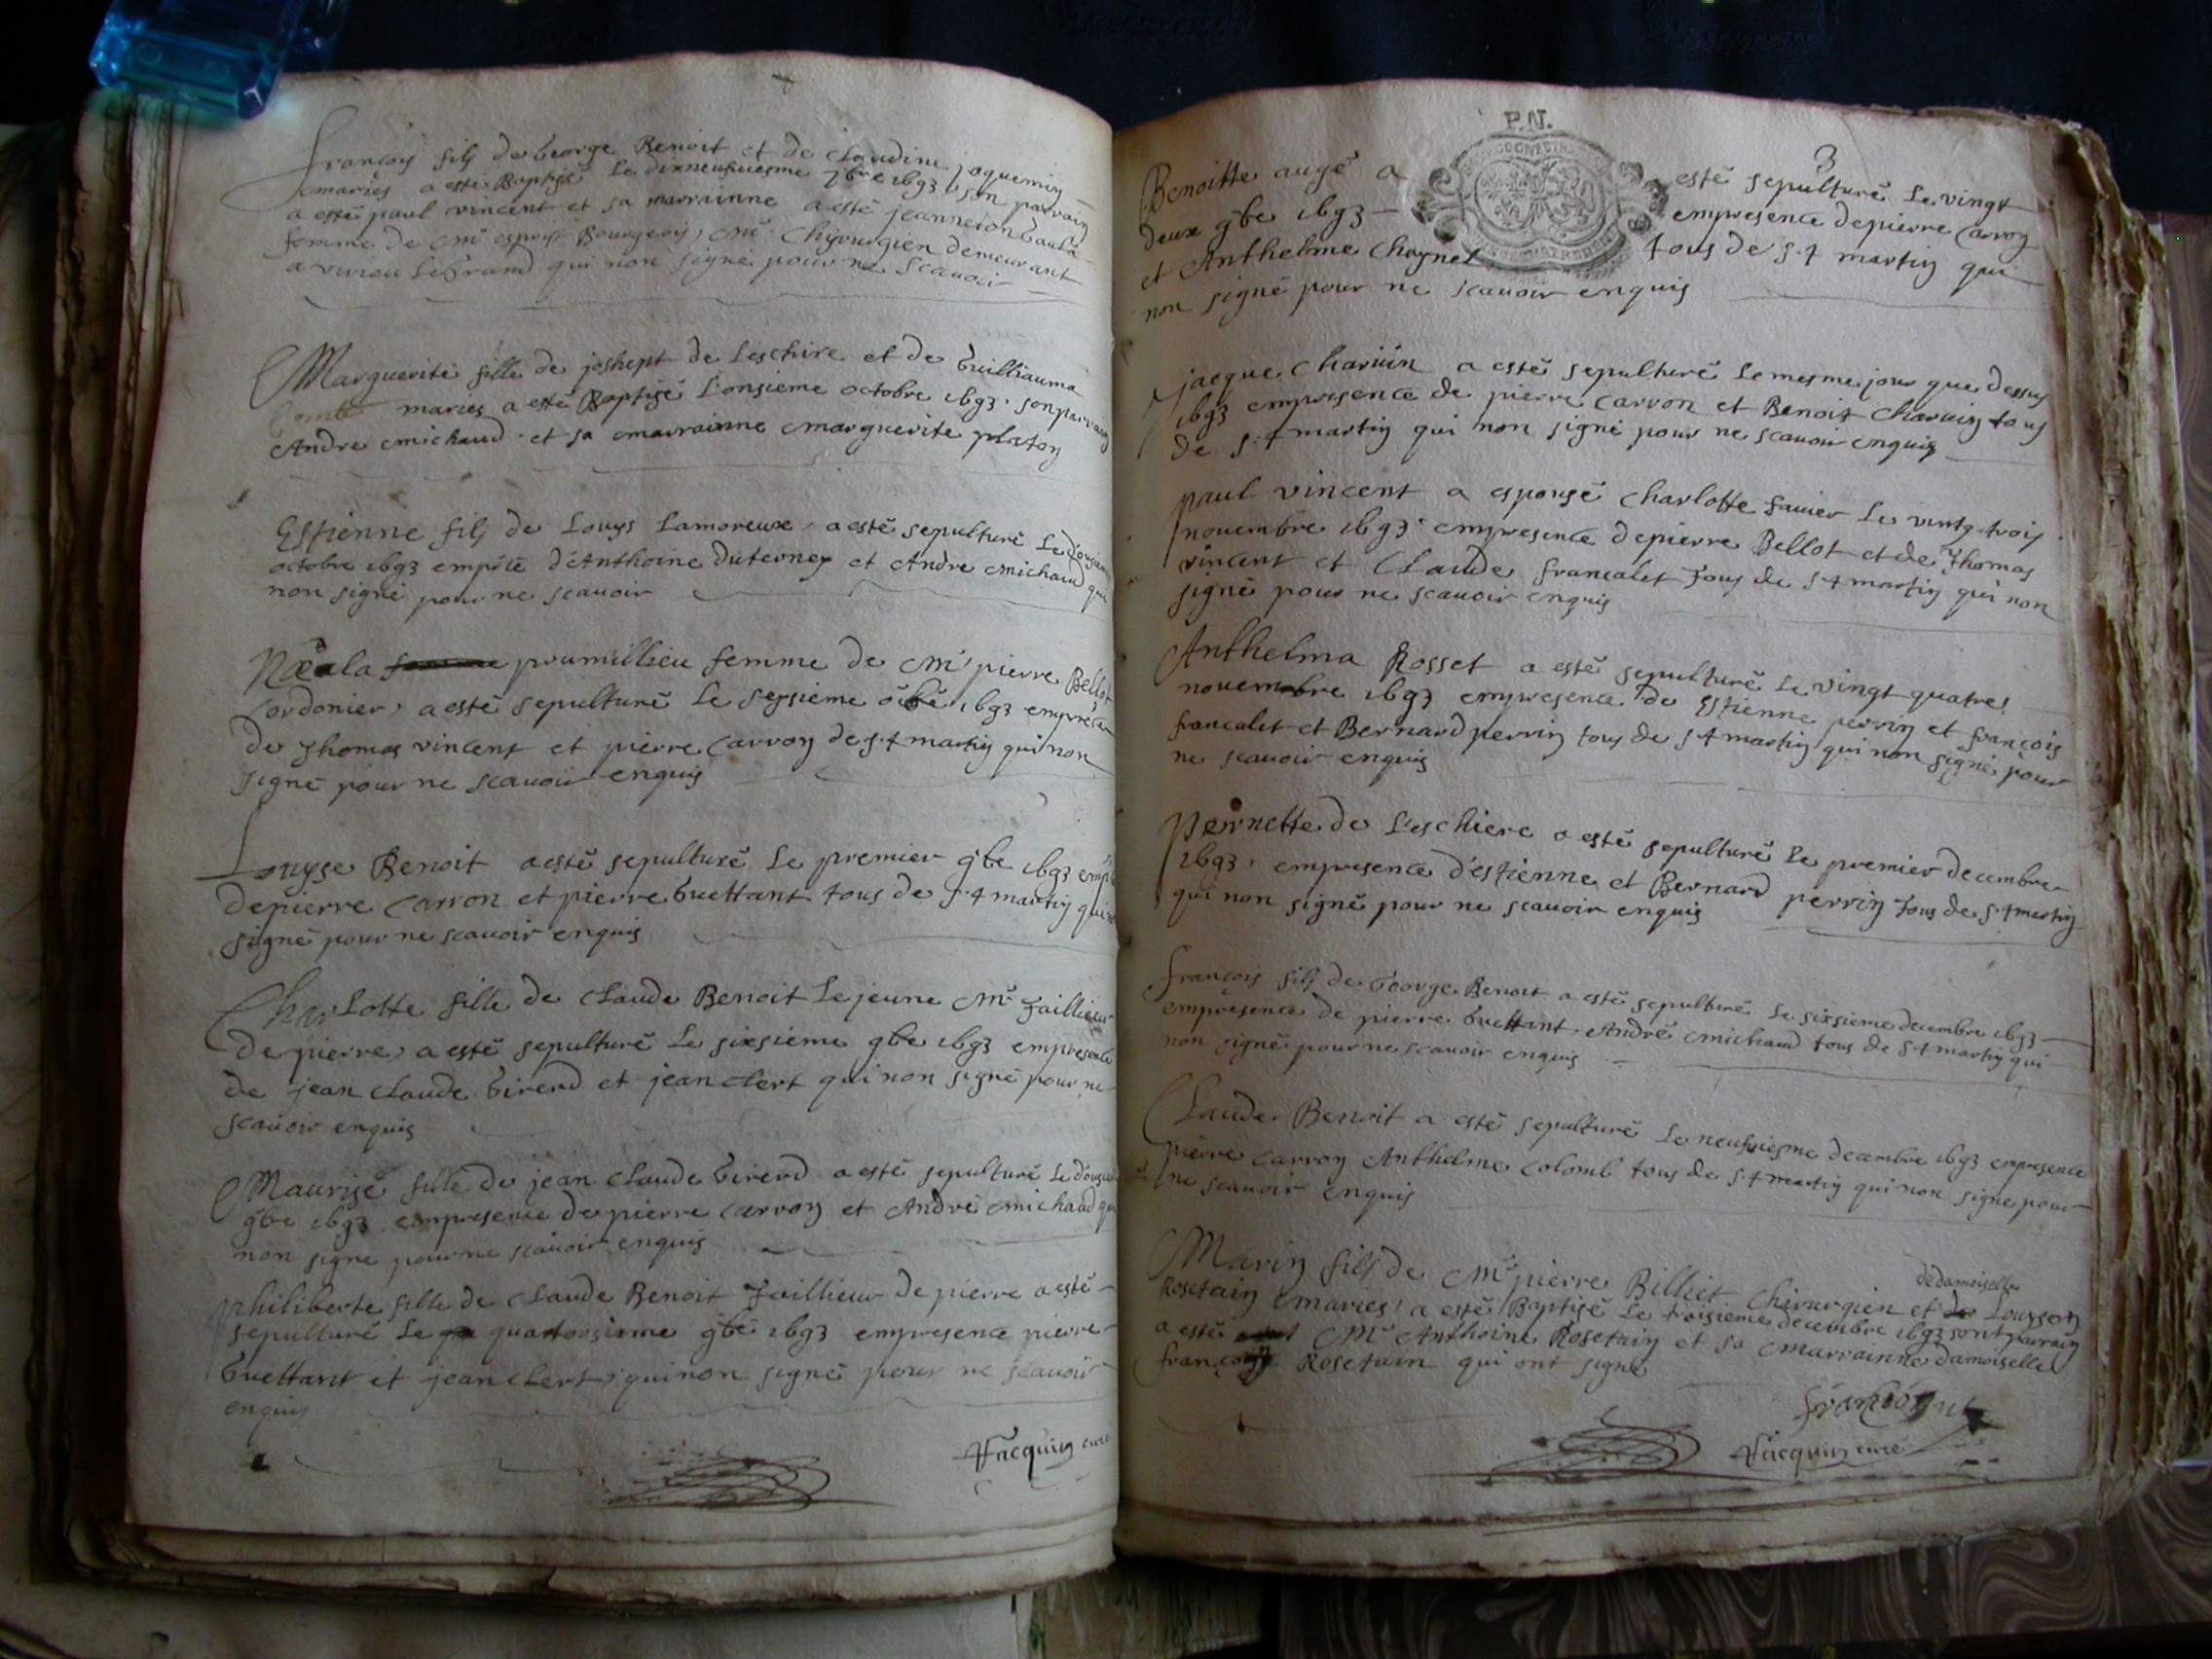 françois fils de George Benoit et de Claudine joquemin
mariés a esté Baptisé le dixneufviesme 7bre 1693 son parrain
a esté paul vincent et sa marrainne a esté jeanne
femme de Mr esprit Bourgeois, Mr Chirurgien demeurant
a virieu le Grand qui non signé pour ne scavoir
Marguerite fille de joshept de Leschire et de Guilliauma
mariés a esté Baptisé l'onsieme octobre 1693 son parrain
Andre michaud et sa marrainne marguerite platon
Estienne fils de Louys Lamoreux a esté sepulturé le
octobre 1693 empñce d'Anthoine Duterney et Andre michaud qui
non signé pour ne scavoir
la prumillieu femme de Mr pierre Bellot
Cordonier, a esté sepulturé le seysieme 1693
de Thomas vincent et pierre Carron de st martin qui non
signé pour ne scavoir enquis
Louyse Benoit a esté sepulturé le premier 9bre 1693
de pierre Carron et pierre Guettant tous de st martin qui
signé pour ne scavoir enquis
Charlotte fille de Claude Benoit le jeune Mr Taillieur
de pierre, a esté sepulturé le sixsieme 9bre 1693 empresence
de jean Claude Girerd et jean Clert qui non signé pour ne
scavoir enquis
Maurise fille de jean Claude Girerd a esté sepulturé le
9bre 1693 empresence de pierre Carron et André michaud qui
non signe pour ne scavoir enquis
philiberte fille de Claude Benoit Taillieur de pierre a esté
sepulturé le quatorsieme 9bre 1693 empresence pierre
Guettant et jean Clert, qui non signé pour ne scavoir
enquis
Jacquin curé
P.N.
3
Benoitte augé a esté sepulturé le vingt
deux 9bre 1693 empresence de pierre Carron
et Anthelme Chaynel tous de st martin qui
non signé pour ne scavoir enquis
jacque Charvin a esté sepulturé le mesme jour que dessus
1693 empresence de pierre Carron et Benoit Charvin tous
de st martin qui non signé pour ne scavoir enquis
paul vincent a espousé Charlotte favier le vintg-trois
novembre 1693 empresence de pierre Bellot et de Thomas
vincent et Claude francalet tous de st martin qui non
signé pour ne scavoir enquis
Anthelma Rosset a esté sepulturé le vingt quatre
novembre 1693 empresence de Estienne perrin et françois
francalet et Bernard perrin tous de st martin qui non signé pour
ne scavoir enquis
pernette de Leschiere a esté sepulturé le premier decembre
1693, empresence d'estienne et Bernard perrin tous de st martin
qui non signé pour ne scavoir enquis
françois fils de George Benoit a esté sepulturé le sixsieme decembre 1693
empresence de pierre Guettant André michaud tous de st martin qui
non signé pour ne scavoir enquis
Claude Benoit a esté sepulturé le neufviesme decembre 1693 empresence
pierre Carron Anthelme Colomb tous de st martin qui non signe pour
ne scavoir enquis
Marin fils de Mr pierre Billiet Chirurgien et de damoiselle Louyson
Rosetain mariés, a esté Baptisé le troisieme decembre 1693 sont parrain
a esté Mr Anthoine Rosetain et sa marrainne damoiselle
Rosetain qui ont signé
Jacquin curé